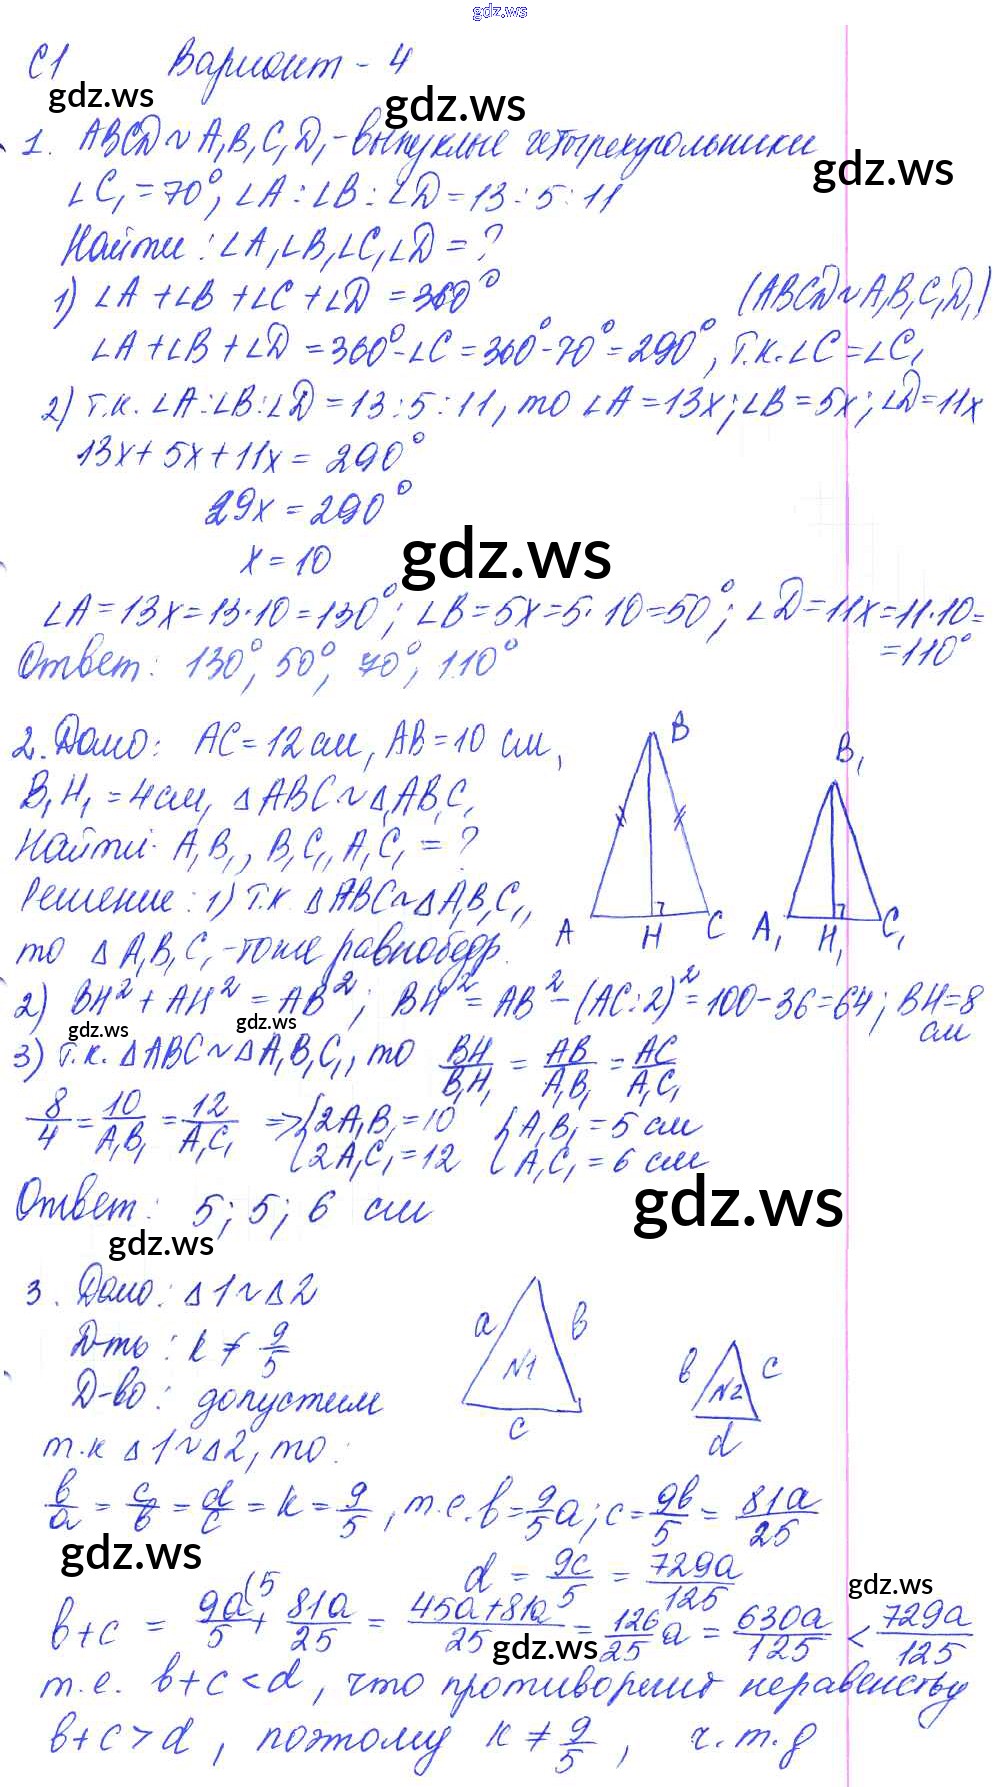 gdz.ws
С1 Вариант - 4
gdz.ws gdz.ws
1. ABCD ~ A₁B₁C₁D₁ - выпуклые четырехугольники
gdz.ws
∠C₁ = 70°, ∠A : ∠B : ∠D = 13 : 5 : 11
Найти: ∠A, ∠B, ∠C, ∠D = ?
1) ∠A + ∠B + ∠C + ∠D = 360° (ABCD ~ A₁B₁C₁D₁)
∠A + ∠B + ∠D = 360° - ∠C = 360° - 70° = 290°, т.к. ∠C = ∠C₁
2) т.к. ∠A : ∠B : ∠D = 13 : 5 : 11, то ∠A = 13x; ∠B = 5x; ∠D = 11x
13x + 5x + 11x = 290°
29x = 290°
x = 10
gdz.ws
∠A = 13x = 13·10 = 130°; ∠B = 5x = 5·10 = 50°; ∠D = 11x = 11·10 =
= 110°
Ответ: 130°, 50°, 70°, 110°
2. Дано: AC = 12 см, AB = 10 см,
B₁H₁ = 4 см, △ABC ~ △A₁B₁C₁
Найти: A₁B₁, B₁C₁, A₁C₁ = ?
Решение: 1) т.к. △ABC ~ △A₁B₁C₁,
то △A₁B₁C₁ - тоже равнобедр.
B
A H C
B₁
A₁ H₁ C₁
2) BH² + AH² = AB²; BH² = AB² - (AC:2)² = 100 - 36 = 64; BH = 8
см
gdz.ws gdz.ws
3) т.к. △ABC ~ △A₁B₁C₁, то BH/B₁H₁ = AB/A₁B₁ = AC/A₁C₁
8/4 = 10/A₁B₁ = 12/A₁C₁ => { 2A₁B₁ = 10 { A₁B₁ = 5 см
2A₁C₁ = 12 A₁C₁ = 6 см
gdz.ws
Ответ: 5; 5; 6 см
gdz.ws
3. Дано: △1 ~ △2
Д-ть: k ≠ 9/5
Д-во: допустим
т.к △1 ~ △2, то:
a в
N1
c
в c
N2
d
в/a = c/в = d/c = k = 9/5, т.е. в = 9/5 a; c = 9в/5 = 81a/25
gdz.ws
d = 9c/5 = 729a/125
gdz.ws
в + c = 9a/5 (5 + 81a/25 = 45a+81a/25 = 126/25 a = 630a/125 < 729a/125
gdz.ws
т.е. в + c < d, что противоречит неравенству
в + c > d, поэтому k ≠ 9/5, ч.т.д